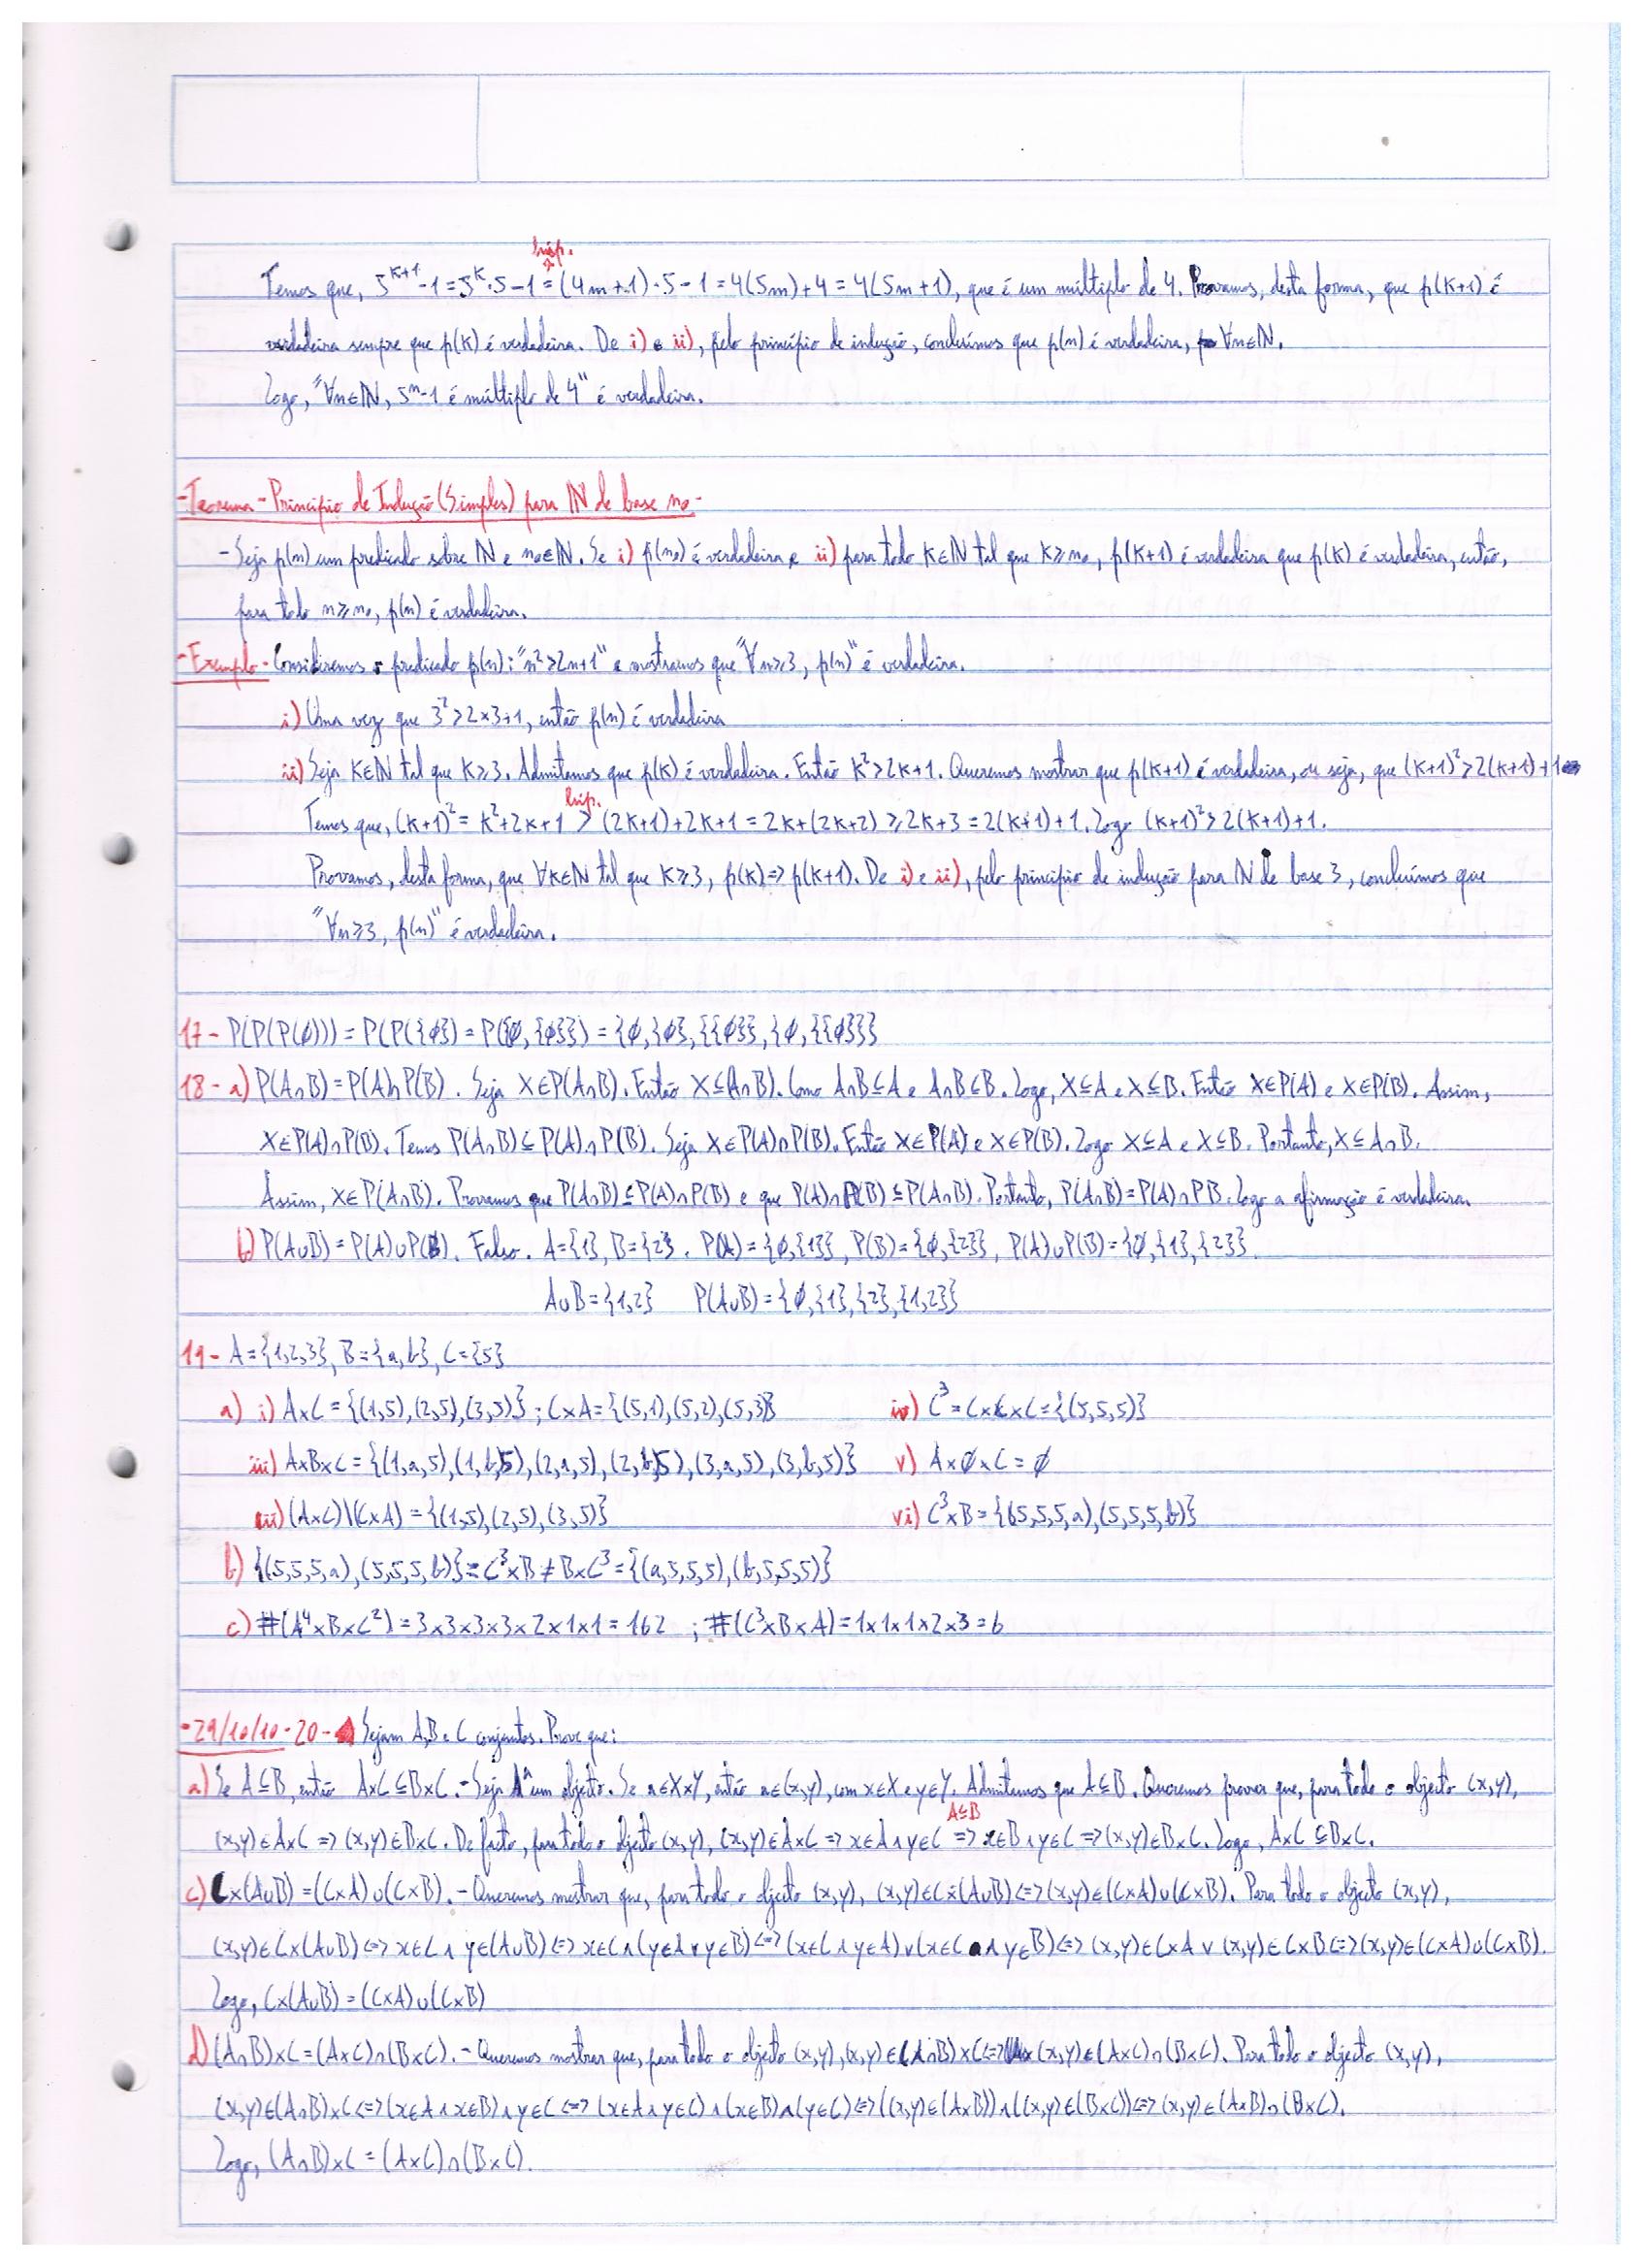 hip.
Temos que, 5^(k+1)-1=5^k·5-1=(4m+1)·5-1=4(5m)+4=4(5m+1), que é um múltiplo de 4. Provamos, desta forma, que p(k+1) é
verdadeira sempre que p(k) é verdadeira. De i) e ii), pelo princípio de indução, concluímos que p(n) é verdadeira, ∀n∈ℕ.
Logo, "∀n∈ℕ, 5ⁿ-1 é múltiplo de 4" é verdadeira.
-Teorema-Princípio de Indução (Simples) para ℕ de base n₀-
-Seja p(n) um predicado sobre ℕ e n₀∈ℕ. Se i) p(n₀) é verdadeira e ii) para todo k∈ℕ tal que k⩾n₀, p(k+1) é verdadeira que p(k) é verdadeira, então,
para todo n⩾n₀, p(n) é verdadeira.
-Exemplo-Consideremos o predicado p(n): "n²>2n+1" e mostramos que "∀n⩾3, p(n)" é verdadeira.
i) Uma vez que 3²>2×3+1, então p(n) é verdadeira
ii) Seja k∈ℕ tal que k⩾3. Admitamos que p(k) é verdadeira. Então k²>2k+1. Queremos mostrar que p(k+1) é verdadeira, ou seja, que (k+1)²>2(k+1)+1
hip.
Temos que, (k+1)²=k²+2k+1>(2k+1)+2k+1=2k+(2k+2)⩾2k+3=2(k+1)+1. Logo (k+1)²>2(k+1)+1.
Provamos, desta forma, que ∀k∈ℕ tal que k⩾3, p(k)=>p(k+1). De i) e ii), pelo princípio de indução para ℕ de base 3, concluímos que
"∀n⩾3, p(n)" é verdadeira.
17-P(P(P(∅)))=P(P({∅})=P({∅,{∅}})={∅,{∅},{{∅}},{∅,{{∅}}}
18-a) P(A∩B)=P(A)∩P(B). Seja X∈P(A∩B). Então X⊆(A∩B). Como A∩B⊆A e A∩B⊆B. Logo, X⊆A e X⊆B. Então X∈P(A) e X∈P(B). Assim,
X∈P(A)∩P(B). Temos P(A∩B)⊆P(A)∩P(B). Seja X∈P(A)∩P(B). Então X∈P(A) e X∈P(B). Logo X⊆A e X⊆B. Portanto, X⊆A∩B.
Assim, X∈P(A∩B). Provamos que P(A∩B)⊆P(A)∩P(B) e que P(A)∩P(B)⊆P(A∩B). Portanto, P(A∩B)=P(A)∩PB. Logo a afirmação é verdadeira
b) P(A∪B)=P(A)∪P(B). Falso. A={1}, B={2}. P(A)={∅,{1}}, P(B)={∅,{2}}, P(A)∪P(B)={∅,{1},{2}}.
A∪B={1,2} P(A∪B)={∅,{1},{2},{1,2}}
19-A={1,2,3}, B={a,b}, C={5}
a) i) A×C={(1,5),(2,5),(3,5)}; C×A={(5,1),(5,2),(5,3)} iv) C³=C×C×C={(5,5,5)}
iii) A×B×C={(1,a,5),(1,b,5),(2,a,5),(2,b,5),(3,a,5),(3,b,5)} v) A×∅×C=∅
ii) (A×C)\(C×A)={(1,5),(2,5),(3,5)} vi) C³×B={(5,5,5,a),(5,5,5,b)}
b) {(5,5,5,a),(5,5,5,b)}=C³×B≠B×C³={(a,5,5,5),(b,5,5,5)}
c) #(A⁴×B×C²)=3×3×3×3×2×1×1=162 ; #(C³×B×A)=1×1×1×2×3=6
-29/10/10-20- Sejam A,B e C conjuntos. Prove que:
a) Se A⊆B, então A×C⊆B×C.-Seja a um objecto. Se a∈X×Y, então a∈(x,y), com x∈X e y∈Y. Admitamos que A⊆B. Queremos provar que, para todo o objecto (x,y),
A⊆B
(x,y)∈A×C=>(x,y)∈B×C. De facto, para todo o objecto (x,y), (x,y)∈A×C=>x∈A∧y∈C=>x∈B∧y∈C=>(x,y)∈B×C. Logo, A×C⊆B×C.
c) C×(A∪B)=(C×A)∪(C×B).-Queremos mostrar que, para todo o objecto (x,y), (x,y)∈C×(A∪B)<=>(x,y)∈(C×A)∪(C×B). Para todo o objecto (x,y),
(x,y)∈C×(A∪B)<=>x∈C∧y∈(A∪B)<=>x∈C∧(y∈A∨y∈B)<=>(x∈C∧y∈A)∨(x∈C∧y∈B)<=>(x,y)∈C×A∨(x,y)∈C×B<=>(x,y)∈(C×A)∪(C×B).
Logo, C×(A∪B)=(C×A)∪(C×B)
d) (A∩B)×C=(A×C)∩(B×C).-Queremos mostrar que, para todo o objecto (x,y), (x,y)∈(A∩B)×C<=>(x,y)∈(A×C)∩(B×C). Para todo o objecto (x,y),
(x,y)∈(A∩B)×C<=>(x∈A∧x∈B)∧y∈C<=>(x∈A∧y∈C)∧(x∈B)∧(y∈C)<=>((x,y)∈(A×B))∧((x,y)∈(B×C))<=>(x,y)∈(A×B)∩(B×C).
Logo, (A∩B)×C=(A×C)∩(B×C).